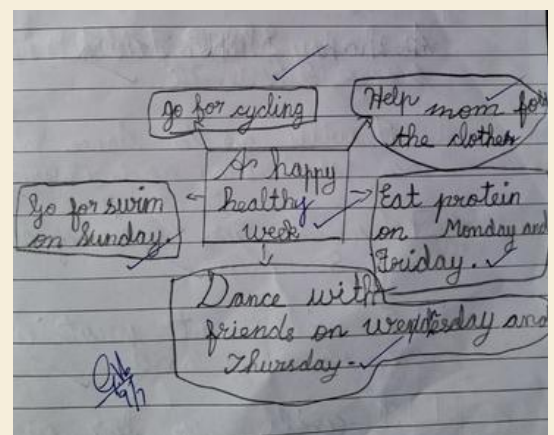 go for cycling
Help mom for
the clothes
A happy
healthy
week
Go for swim
on Sunday.
Eat protein
on Monday and
Friday.
Dance with
friends on wendesday and
Thursday.
9/7